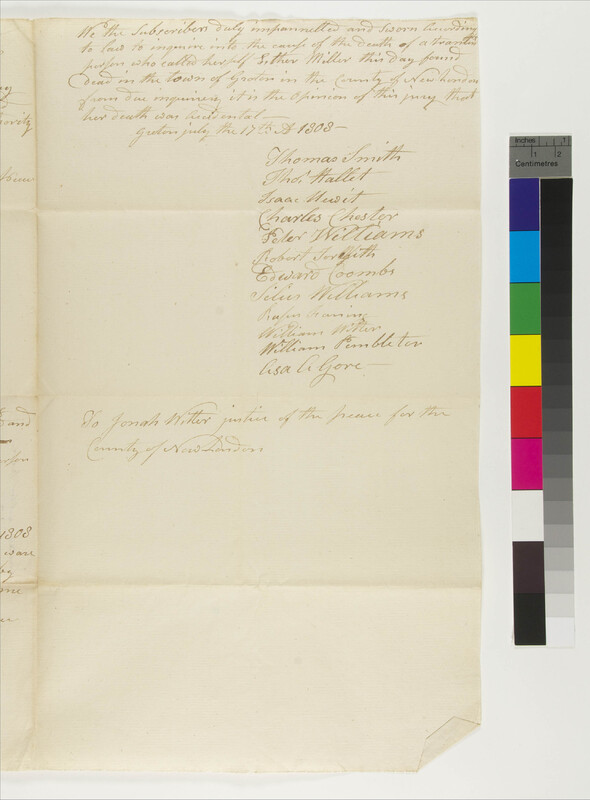 We the Subscribers duly impannelled and Sworn According
to law to inquire into the cause of the death of a transient
person who called herself Esther Miller this day found
Dead in the town of Groton in the County of New London
from due inquirere, it is the Opinion of this jury that
her death was Accidental —
Groton july the 17th A 1808 —
Thomas Smith
Thos. Hallet
Isaac
Charles Chester
Peter Williams
Robert Forsyth
Edward Coombs
Silus Williams
Rufus
William Witter
William Pembleton
Asa A Gore —
To Jonah Witter justice of the peace for the
County of New London
1808
and
Inches 1
1 2
Centimetres